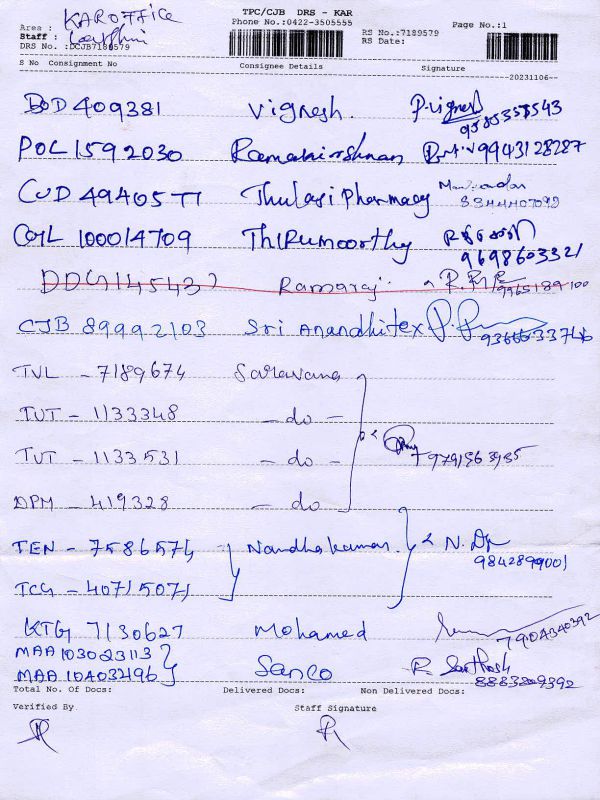 TPC/CJB DRS - KAR
Phone No.:0422-3505555
Page No.:1
Area : KAR OFFICE
Staff :
DRS No. :DCJB7189579
RS No.:7189579
RS Date:
S No Consignment No Consignee Details Signature
20231106
BOD 409381 Vignesh. P.Vignesh
9585358543
POL 1592030 Ramakrishnan R.M.V 9943128287
CUD 4940577 Thulasi Pharmacy
8344407092
CGL 100014709 Thirumoorthy
9698603321
DDG 145437 Ramaraj
9965189100
CJB 89992103 Sri Anandhitex
TVL - 7189674 Saravana
TUT - 1133348 - do -
TUT - 1133531 - do -
DPM - 419328 - do
TEN - 7586574 Nandhakumar N.
9842899001
TCG - 40715071
KTG 7130627 Mohamed
7904340392
MAA 103023113
MAA 104032496 Sanco R Santhosh
8883209392
Total No. Of Docs: Delivered Docs: Non Delivered Docs:
Verified By Staff Signature